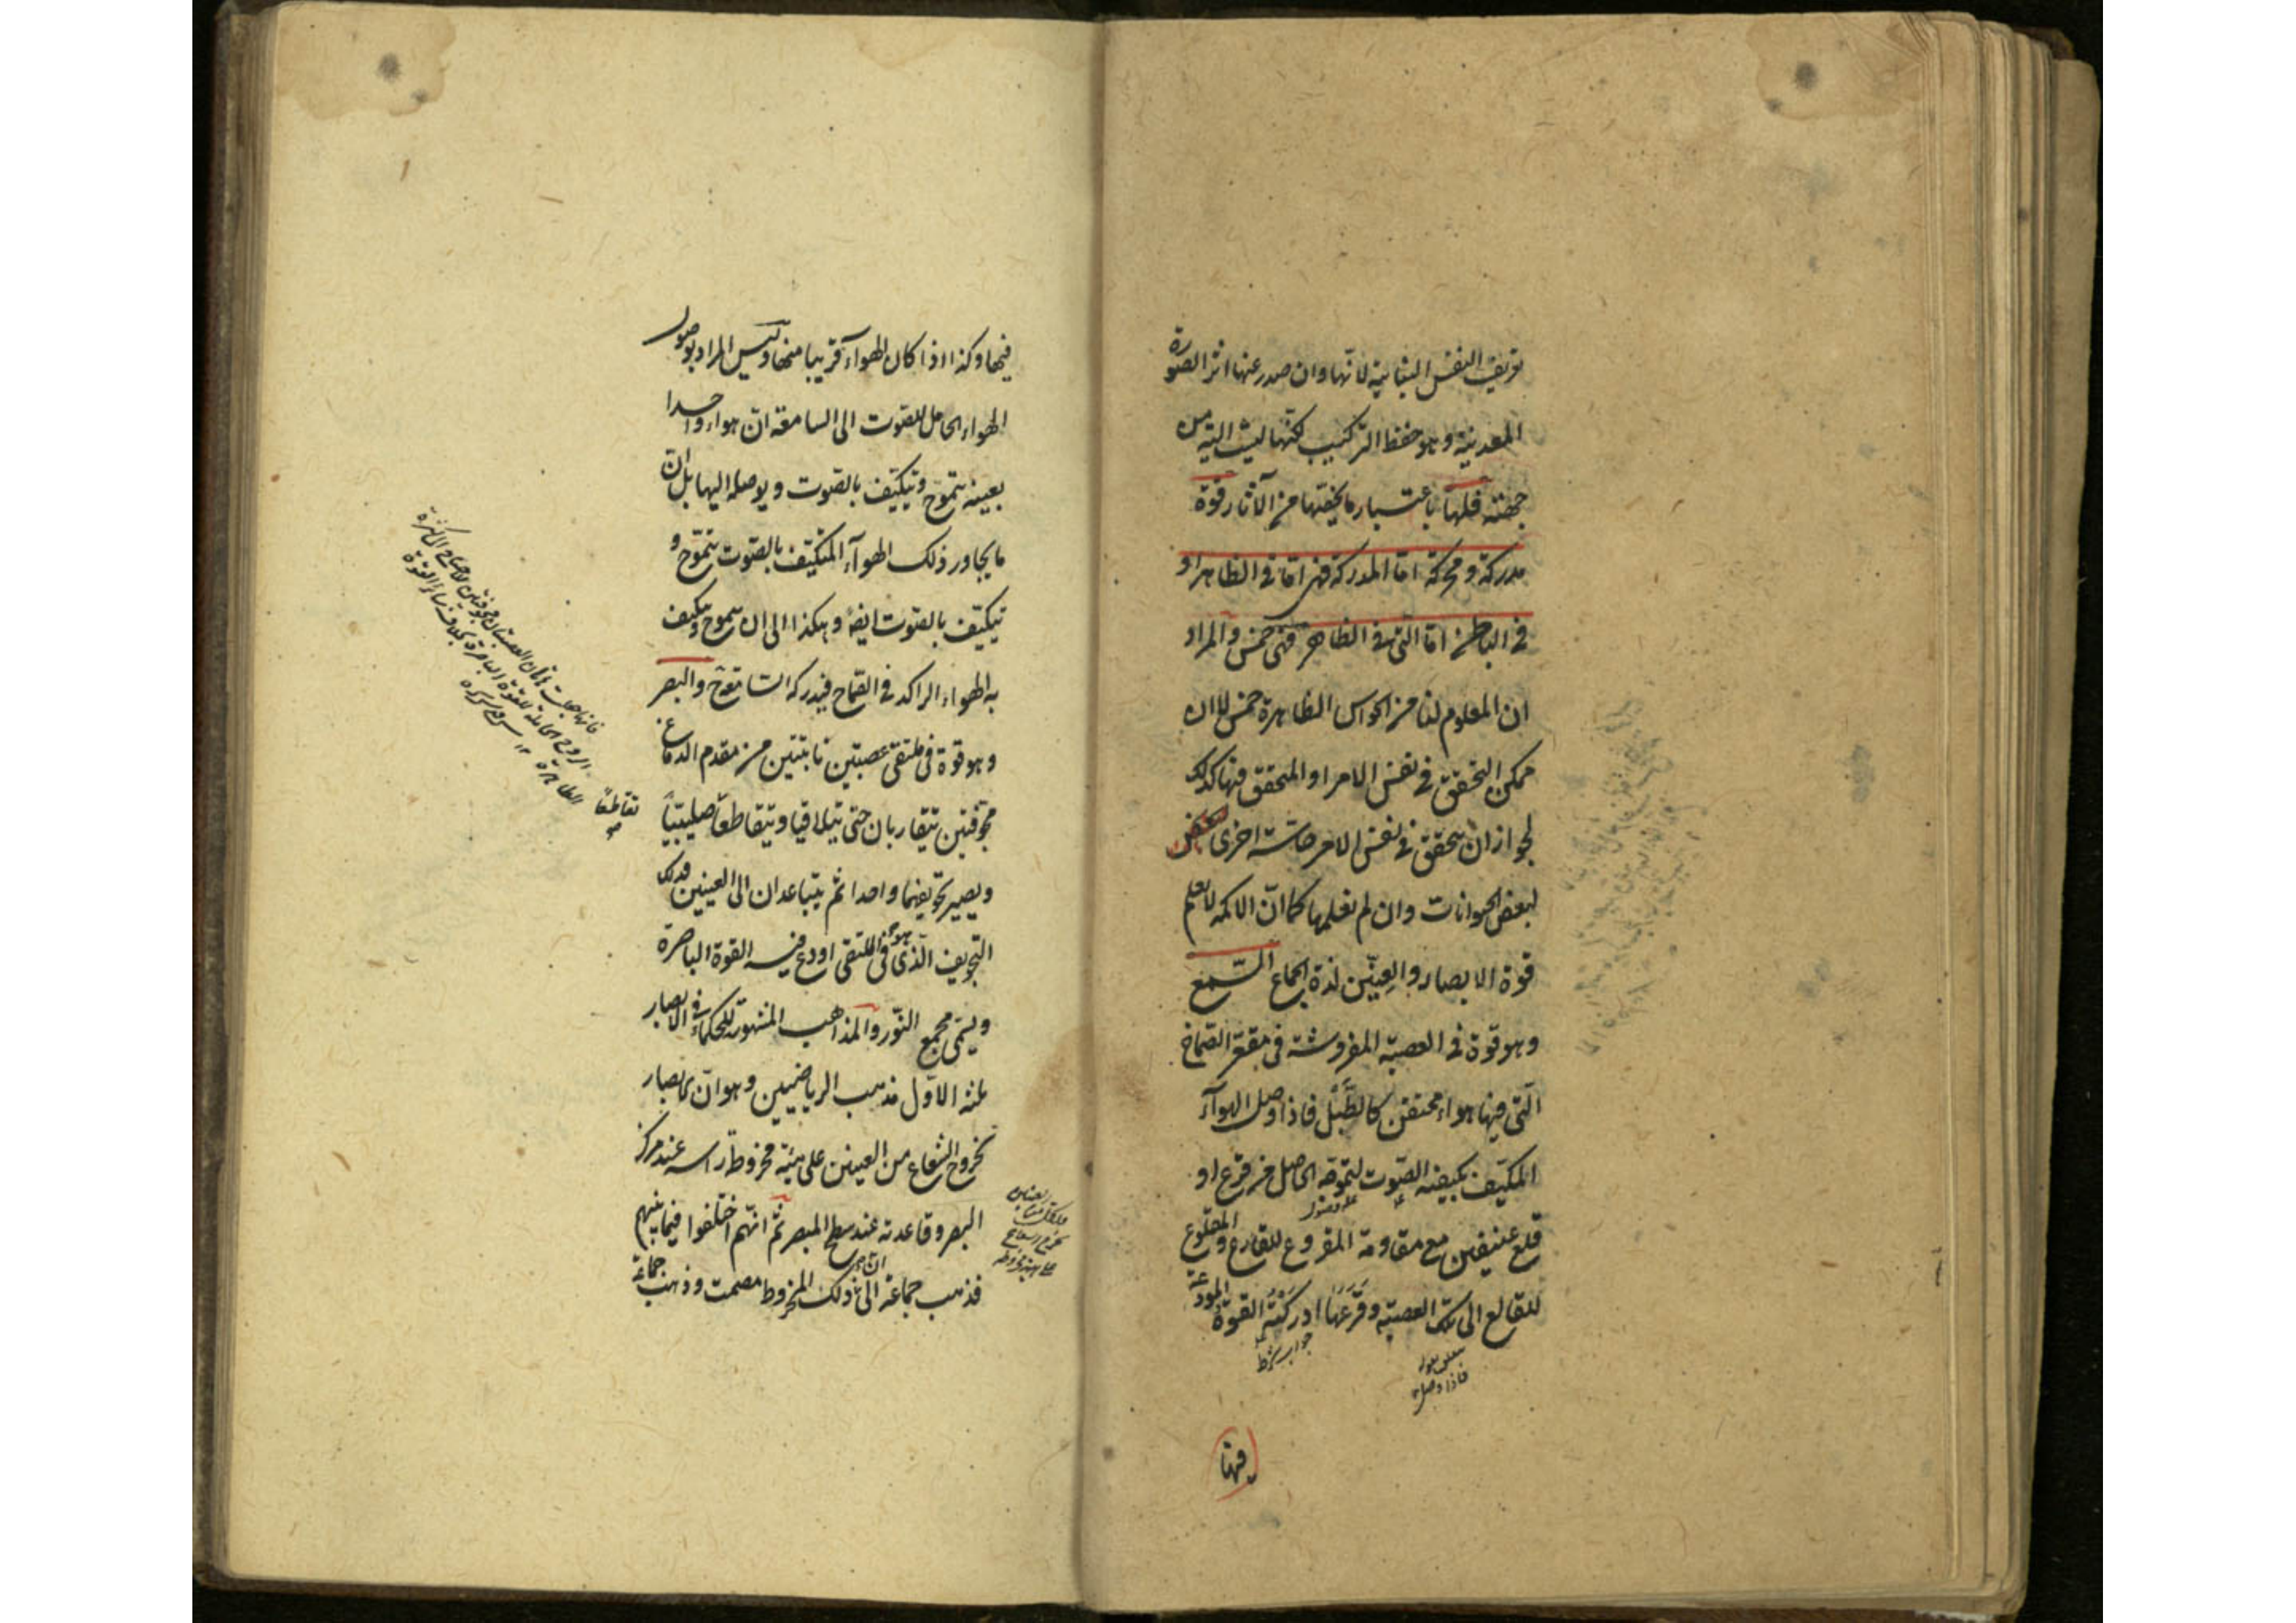 تعريف النفس النباتية لانّها وان صدر عنها اثر الصورة
المعدنية وهو حفظ التركيب لكنّها ليست آلية من
جهته فلها باعتبار ما يخصّها من الآثار قوة
مدركة ومحركة امّا المدركة فهى امّا فى الظاهر او
فى الباطن امّا التى فى الظاهر فهى خمس والمراد
ان المعلوم لنا من الحواس الظاهرة خمس لا ان
ممكن التحقق فى نفس الامر او المتحقق فيها كذلك
لجواز ان يتحقق فى نفس الامر حاسّة اخرى
لبعض الحيوانات وان لم نعلمها كما انّ الاكمه لا يعلم
قوة الابصار والعنّين لذة الجماع السّمع
وهو قوة فى العصبة المفروشة فى مقعر الصماخ
الّتى فيها هواء محتقن كالطّبل فاذا وصل الهوآء
المكيّف بكيفية الصّوت لتموّجه الحاصل من قرع او
قلع عنيفين مع مقاومة المقروع للقارع والمقلوع
للقالع الى تلك العصبة وقرعها ادركته القوة المودعة
جواب شرط
فاذا وصل
فيها
فيها وكذا اذا كان الهوآء قريبا منها وليس المراد بوصول
الهواء الحامل للصّوت الى السامعة انّ هواء واحدا
بعينه يتموّج ويتكيّف بالصّوت ويوصله اليها بل انّ
ما يجاور ذلك الهوآء المتكيّف بالصّوت يتموّج و
يتكيّف بالصّوت ايضا وهكذا الى ان يتموج ويتكيف
به الهواء الراكد فى الصّماخ فيدركه السّامعة ح والبصر
وهو قوة فى ملتقى عصبتين نابتتين من مقدم الدماغ
مجوّفتين يتقاربان حتى يتلاقيا ويتقاطعا صليبيّا
تقاطعًا
ويصير تجويفهما واحدا ثم يتباعدان الى العينين فذلك
التجويف الّذى هو فى الملتقى اودع فيه القوة الباصرة
ويسمّى مجمع النّور والمذاهب المشهورة للحكماء فى الابصار
ثلثة الاوّل مذهب الرياضيين وهو انّ الابصار
بخروج الشعاع من العينين على هيئة مخروط رأسه عند مركز
البصر وقاعدته عند سطح المبصر ثم انّهم اختلفوا فيما بينهم
فذهب جماعة الى انّ ذلك المخروط مصمت وذهب جماعة